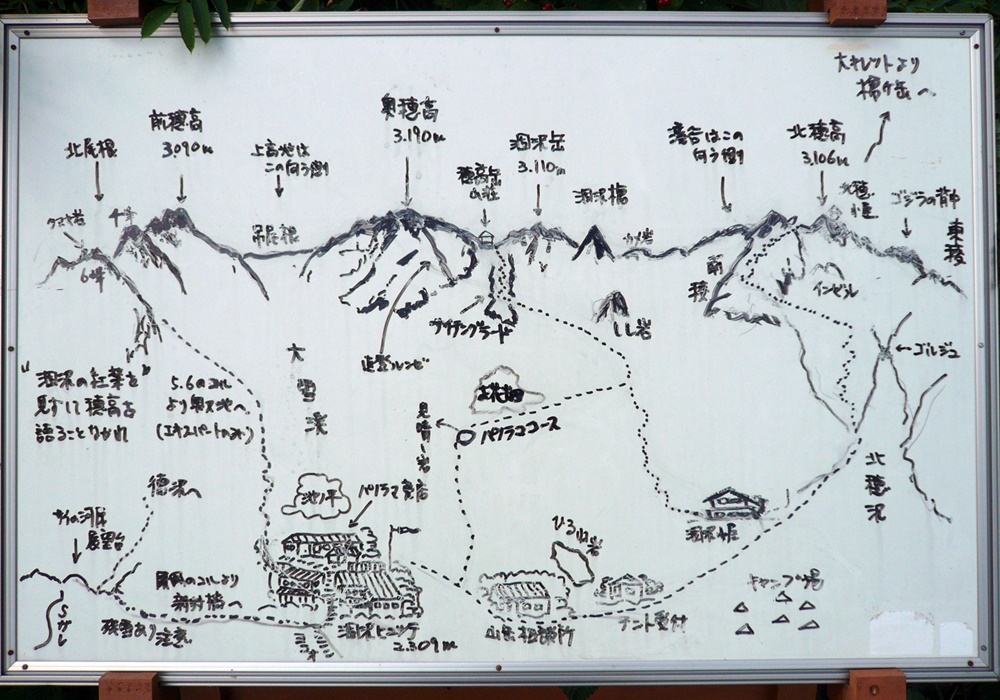 大キレットより
槍ヶ岳へ
北尾根
前穂高
3.090m
上高地は
この向う側
奥穂高
3.190m
穂高岳
山荘
涸沢岳
3.110m
涸沢槍
滝谷はこの
向う側
北穂高
3.106m
北穂
小屋
ゴジラの背中
東稜
クマヤ岩
6峰
吊尾根
南稜
インゼル
ザイテングラート
しし岩
ゴルジュ
直登ルンゼ
大雪渓
"涸沢の紅葉を
見ずして穂高を
語ることなかれ"
5.6のコル
より奥又池へ
(エキスパートのみ)
お花畑
見晴し岩
パノラマコース
北穂沢
徳沢へ
池ノ平
パノラマ売店
涸沢小屋
サイの河原
展望台
ひるね岩
キャンプ場
屏風のコルより
新村橋へ
残雪あり
注意
涸沢ヒュッテ
2.309m
山岳相談所
テント受付